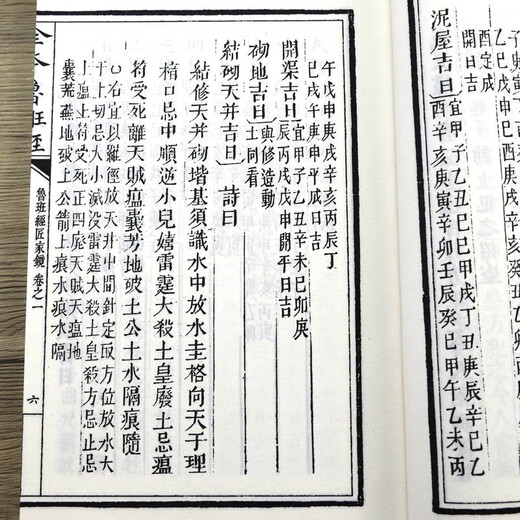 酉定成
開日吉
泥屋吉日 宜甲子乙丑己巳甲戌丁丑庚辰辛巳乙
酉辛亥庚寅辛卯壬辰癸巳甲午乙未丙
午戊申庚戌辛亥丙辰丁
巳戊午庚申平成日吉
開渠吉日 宜甲子乙丑辛未己卯庚
辰丙戌戊申開平日吉
砌地吉日 與修造動
土同看
結砌天井吉日 詩曰
結修天井砌堦基須識水中放水圭格向天干埋
棓口忌中順逆小兒嬉雷霆大殺土皇廢土忌瘟
符受死離天賊瘟囊芳地破土公土水隔痕隨
右宜以羅經放天井中間針定取方位放水天
干上切忌大小滅沒雷霆大殺土皇殺方忌止忌
土瘟土符受死正四廢天賊天瘟地
囊荒蕪地破土公箭土痕水痕水隔
魯班經
魯班經匠家鏡 卷之一
六